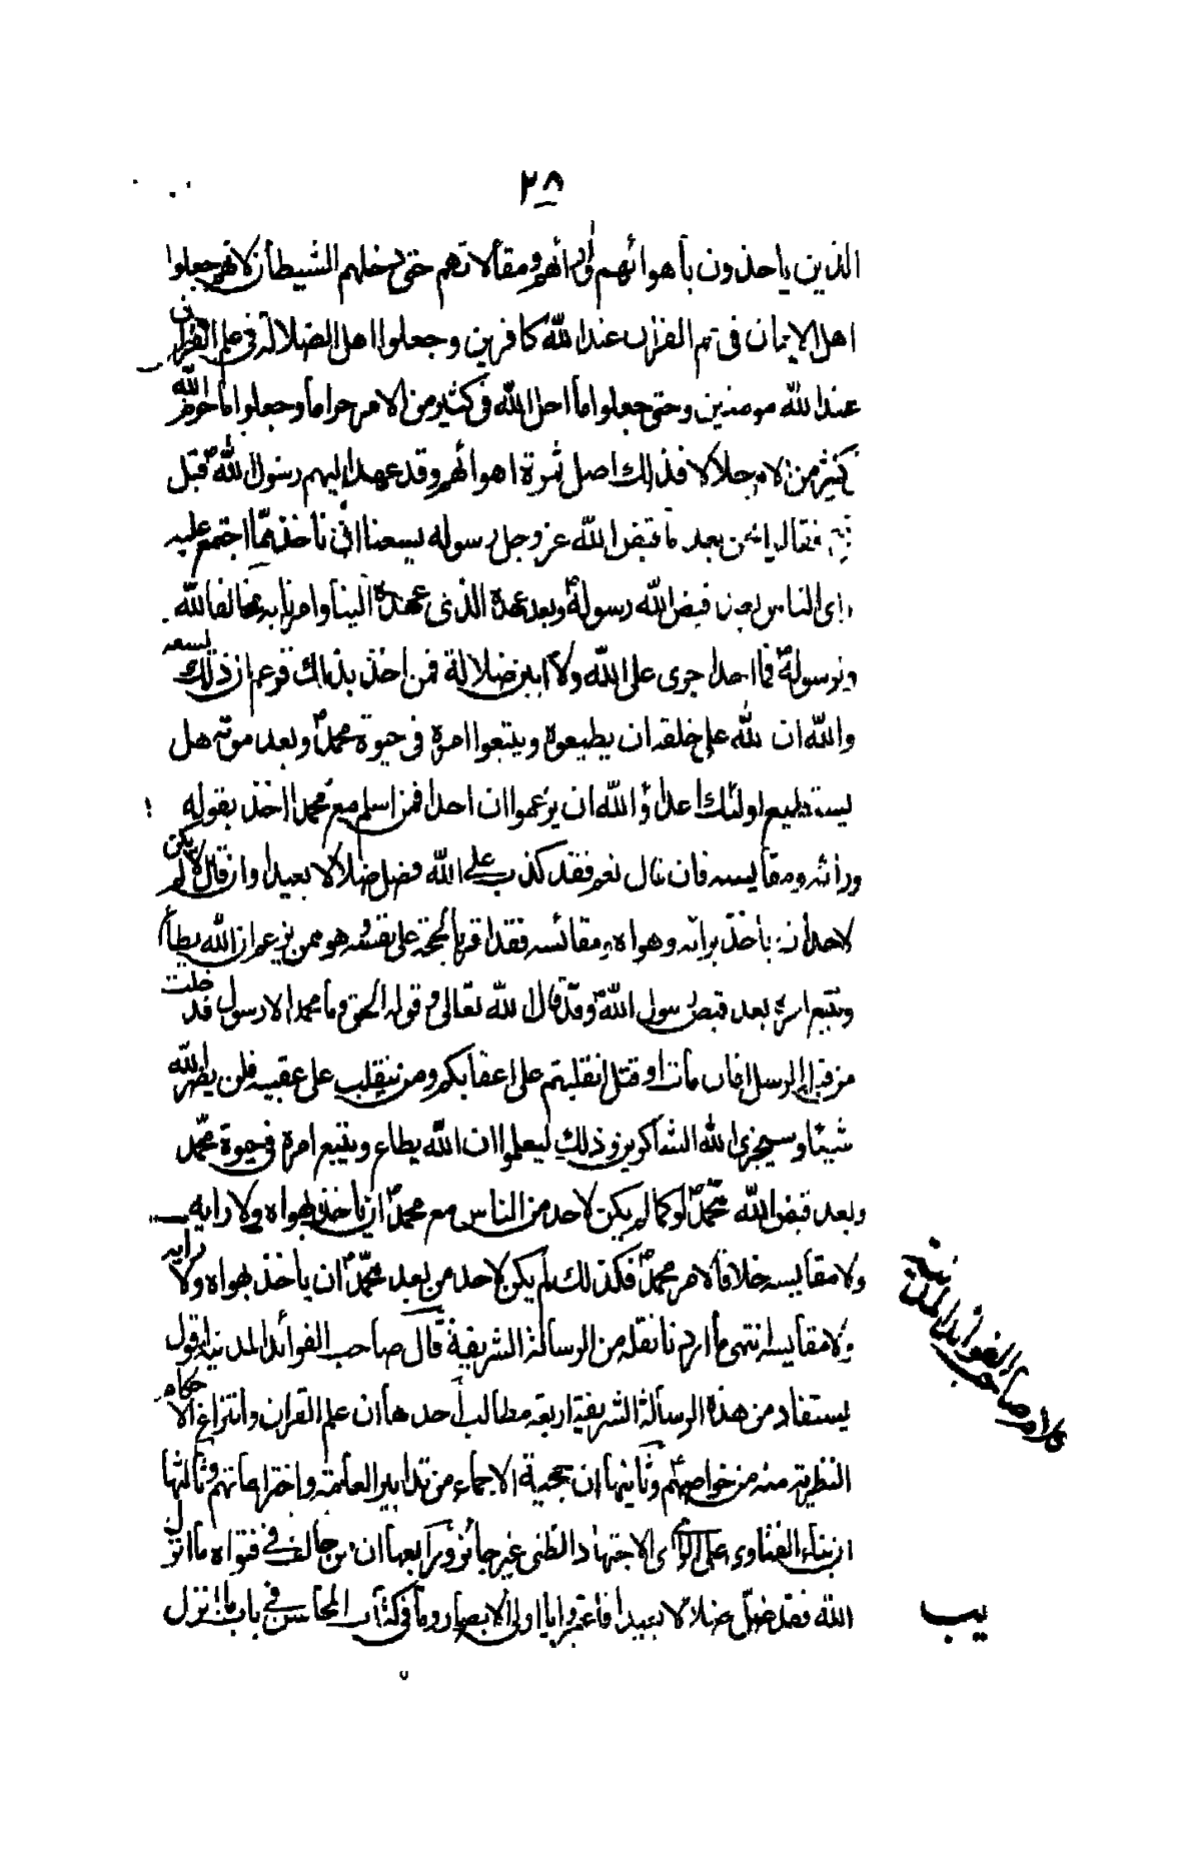 ٢٨
الذين ياخذون بأهوائهم وآرائهم ومقالاتهم حتى دخلهم الشيطان لانهم جعلوا
اهل الايمان في علم القران عند الله كافرين وجعلوا اهل الضلالة في علم القران
عند الله مومنين وحتى جعلوا ما احل الله في كثير من الامر حراما وجعلوا ما حرم الله
كثير من الامر حلالا فذلك اصل ثمرة اهوائهم وقد عهد اليهم رسول الله ص قبل
فقالوا نحن بعد ما قبض الله عز وجل رسوله يسعنا ان ناخذ بما اجتمع عليه
راى الناس بعد قبض الله رسوله ص وبعد عهده الذى عهده الينا وامرنا به مخالفا لله
ولرسوله ص فما احد اجرى على الله ولا ابين ضلالة فمن اخذ بذلك وزعم ان ذلك يسعه
والله ان لله على خلقه ان يطيعوه ويتبعوا امره في حيوة محمد ص وبعد موته هل
يستطيع اولئك اعداؤ الله ان يزعموا ان احدا فمن اسلم مع محمد اخذ بقوله
ورائه ومقاييسه فان قال نعم فقد كذب على الله وضل ضلالا بعيدا وان قال لا لم يكن
لاحد ان ياخذ برائه وهواه ومقائسه فقد اقر بالحجة على نفسه وهو ممن يزعم ان الله يطاع
ويتبع امره بعد قبض رسول الله ص وقد قال الله تعالى وقوله الحق وما محمد الا رسول قد خلت
من قبله الرسل افان مات او قتل انقلبتم على اعقابكم ومن ينقلب على عقبيه فلن يضر الله
شيئا وسيجزى الله الشاكرين وذلك ليعلموا ان الله يطاع ويتبع امره في حيوة محمد
وبعد قبض الله محمد ص وكما لم يكن لاحد من الناس مع محمد ص ان ياخذ بهواه ولا رايه
ولا مقاييسه خلافا لامر محمد ص فكذلك لم يكن لاحد من بعد محمد ص ان ياخذ بهواه ولا رايه
ولا مقاييسه انتهى ما اردنا نقله من الرسالة الشريفة قال صاحب الفوائد المدنية اقول
يستفاد من هذه الرسالة الشريفة اربعة مطالب احدها ان علم القران وانتزاع الاحكام
النظرية منه من خواصهم ع وثانيها ان حجية الاجماع من تدابير العامة واختراعاتهم وثالثها
ان بناء الفتاوى على الراى والاجتهاد الظنى غير جائز ورابعها ان من خالف في فتواه ما انزل
الله فقد ضل ضلالا بعيدا فاعتبروا يا اولى الابصار وما في كتاب المحاسن في باب ما انزل
كلام صاحب الفوائد المدنية
يب